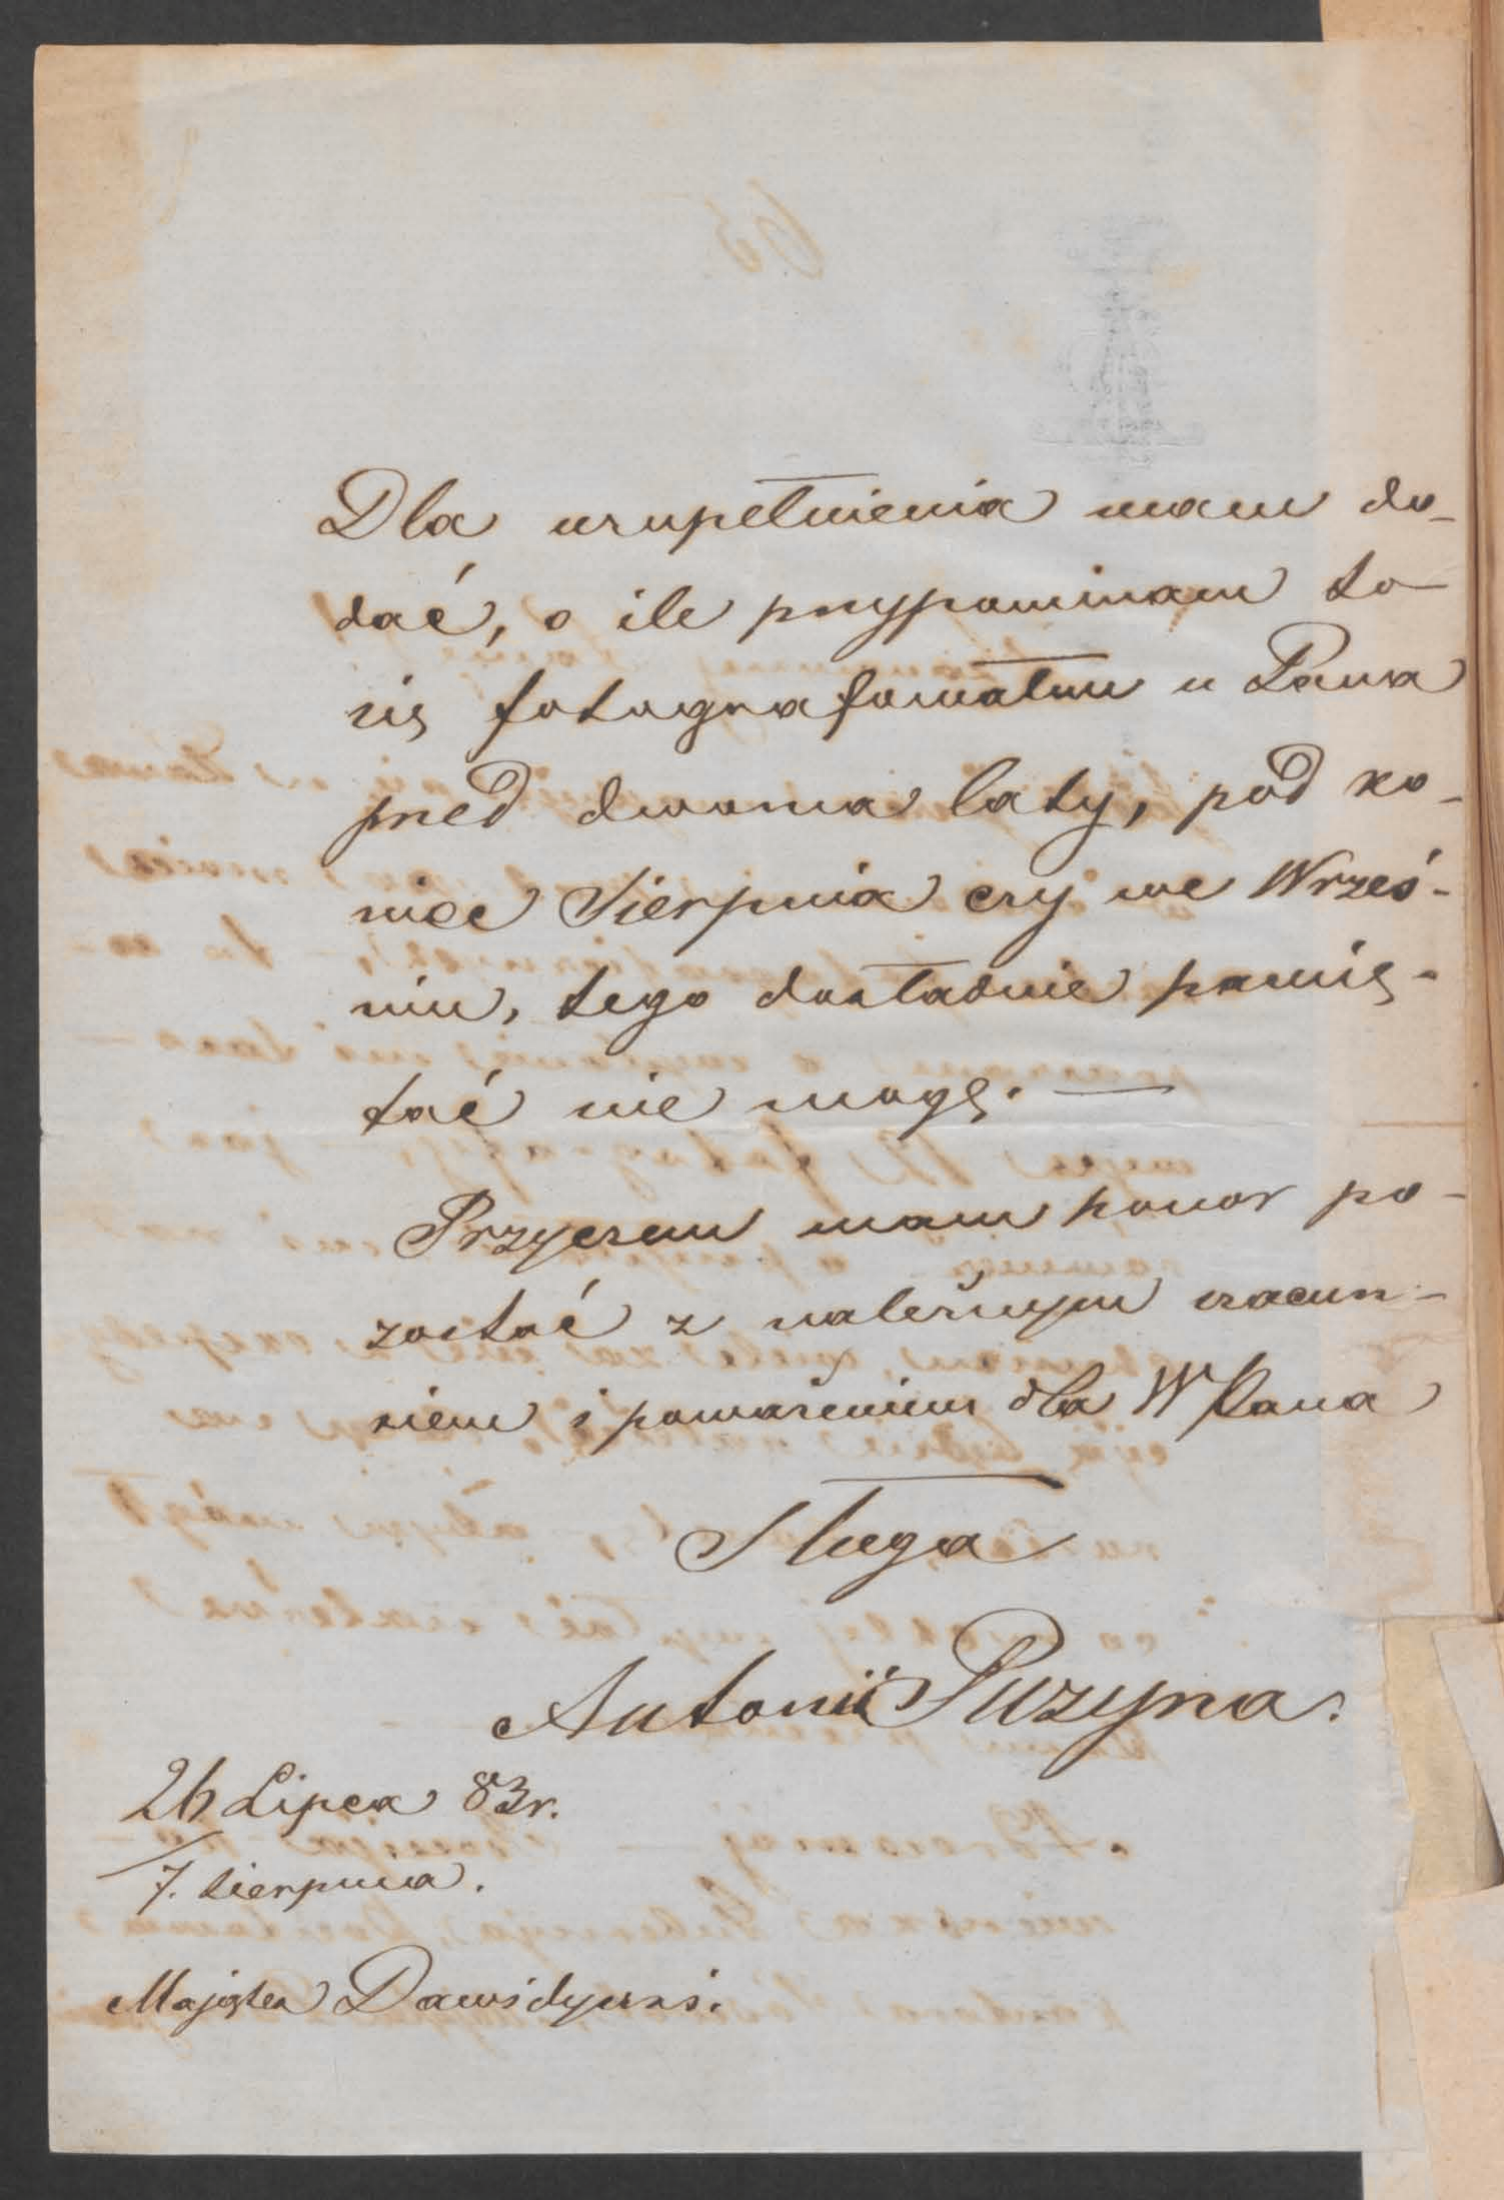 Dla uzupełnienia mam do-
dać, o ile przypominam to
się fotografowałem u Pana
przed dwoma laty, pod ko-
niec Sierpnia czy we Wrześ-
niu, tego dokładnie pamię-
tać nie mogę. —
Przyczem mam honor po-
zostać z należnym szacun-
kiem i poważeniem dla W Pana
Sługa
Antonii Puzyna.
26 Lipca 83r.
/7. Sierpnia.
Majątek Dawidyszki.